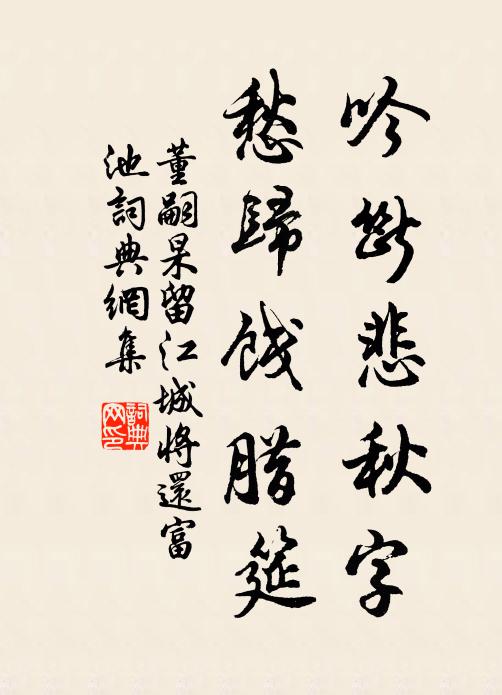 吟断悲秋字
愁歸餞腊筵
董嗣杲留江城將還富
池詞典網集
詞典网印